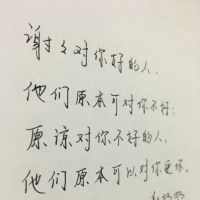 谢谢对你好的人，
他们原本可对你不好；
原谅对你不好的人，
他们原本可以对你更坏。